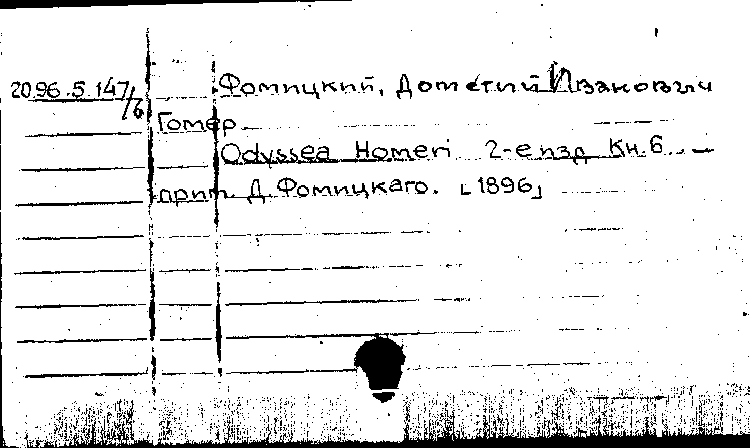 2096.5.147/6 Фомицкий, Дометий Иванович
Гомер
Odyssea Homeri 2-е изд Кн. 6. –
прим. Д. Фомицкаго. [1896]